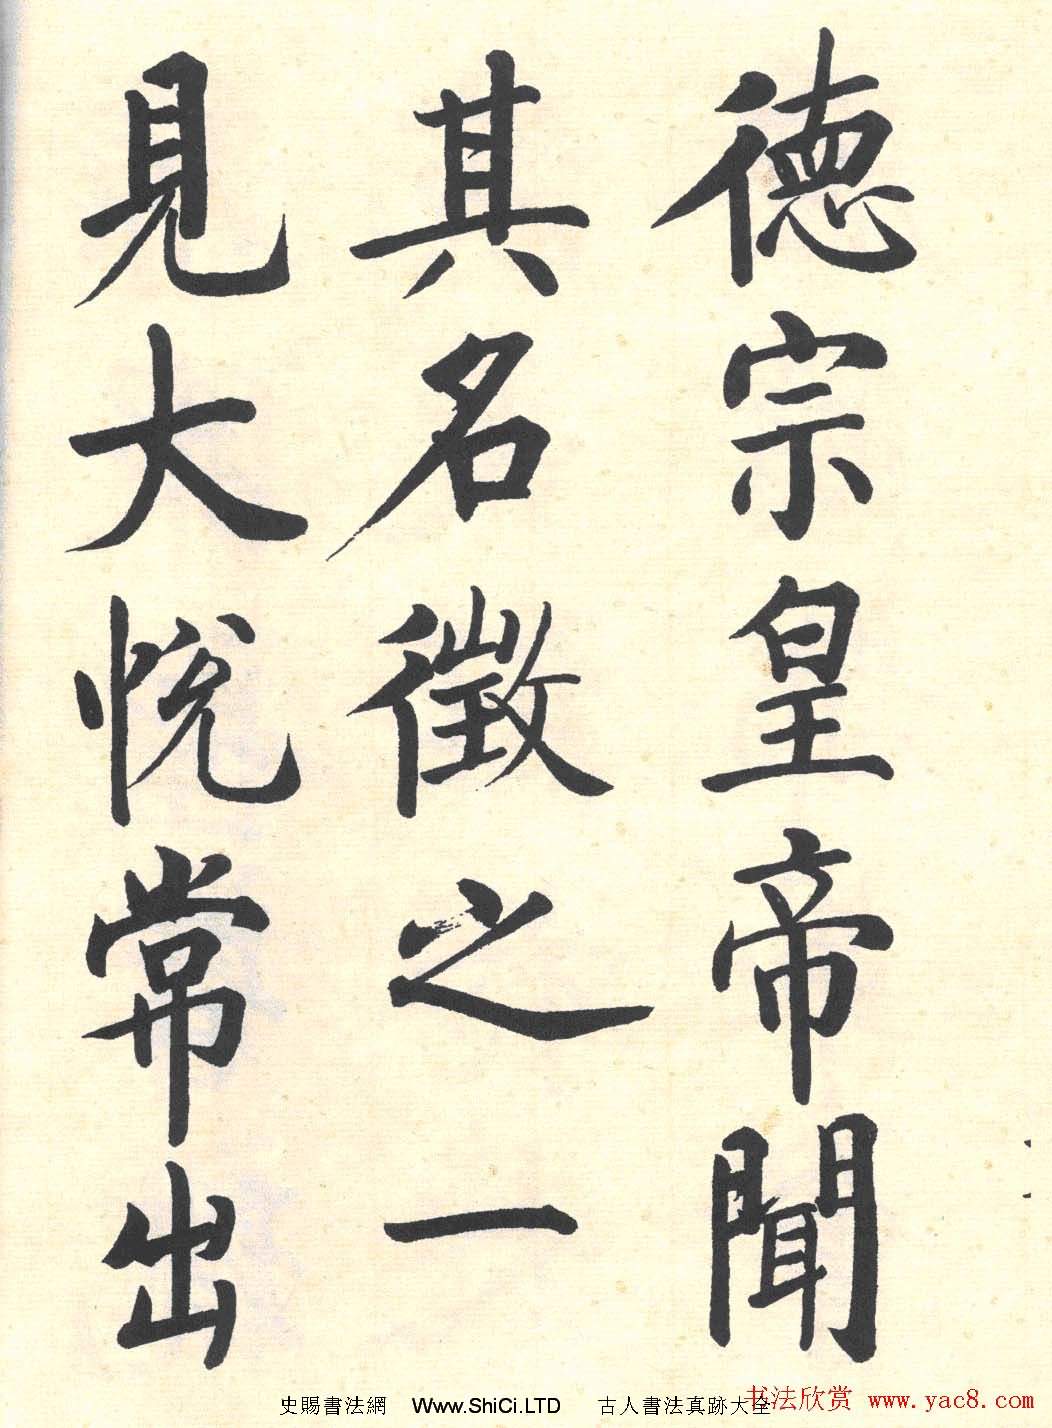 德宗皇帝聞
其名徵之一
見大悦常出
史賜書法網 Www.ShiCi.LTD 古人書法真跡大全
书法欣赏 www.yac8.com